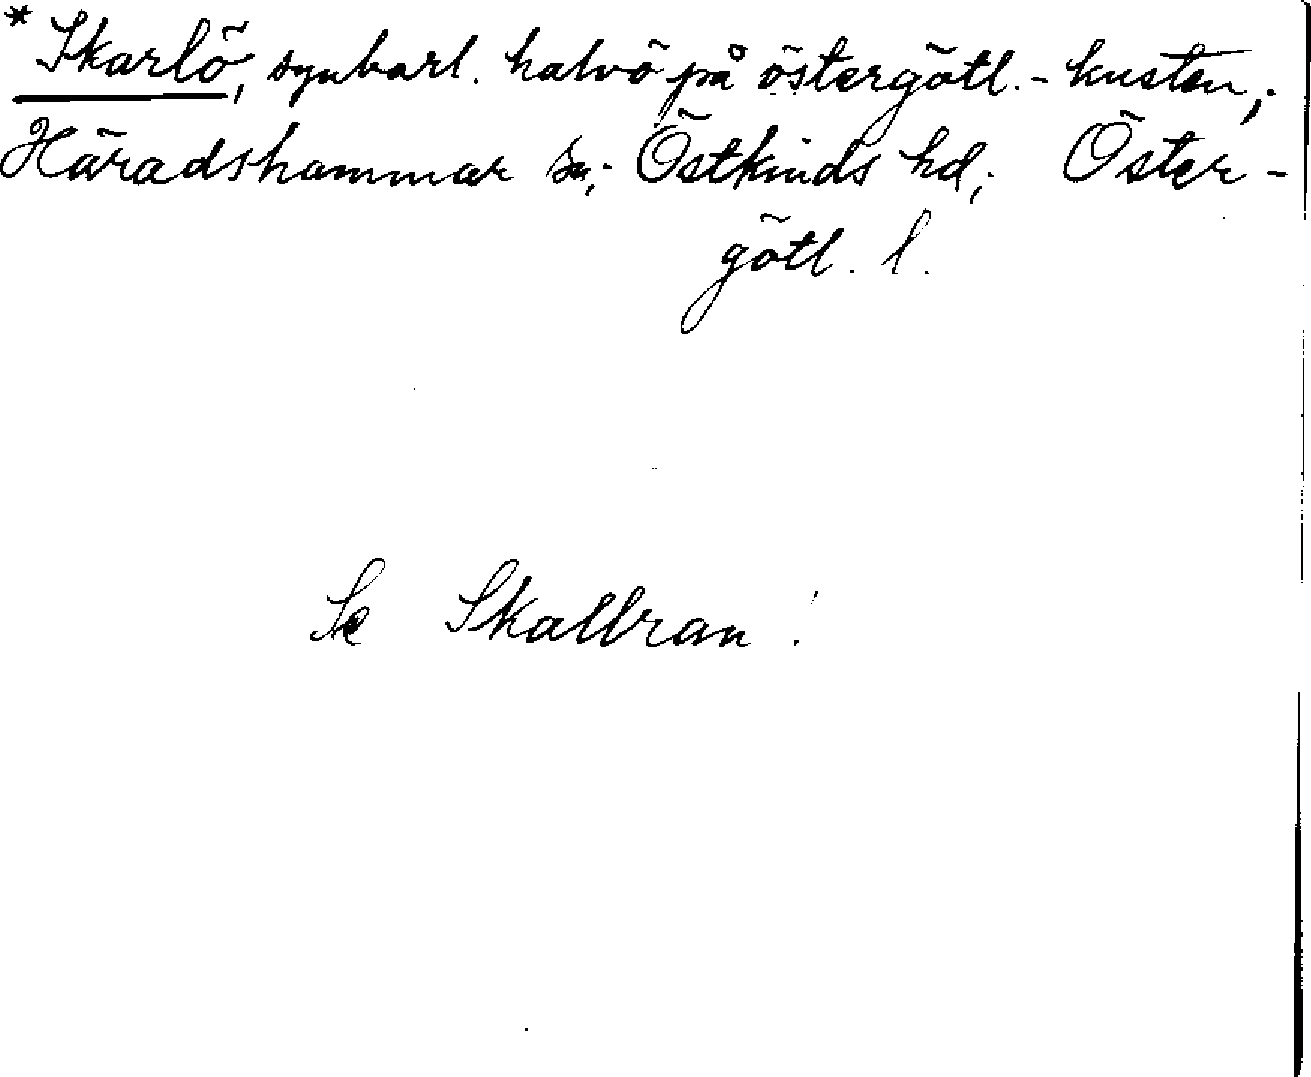 * Skarlö, synbarl. halvö på östergötl. - kusten;
Häradshammar sn; Östkinds hd; Öster-
götl. l.
Se Skallran!